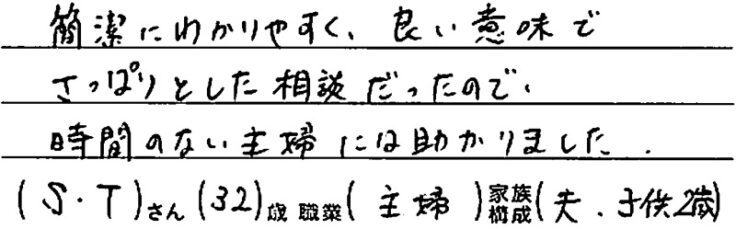 簡潔にわかりやすく、良い意味で
さっぱりとした相談だったので、
時間のない主婦には助かりました.
(S・T)さん(32)歳 職業(主婦)家族構成(夫、子供2歳)